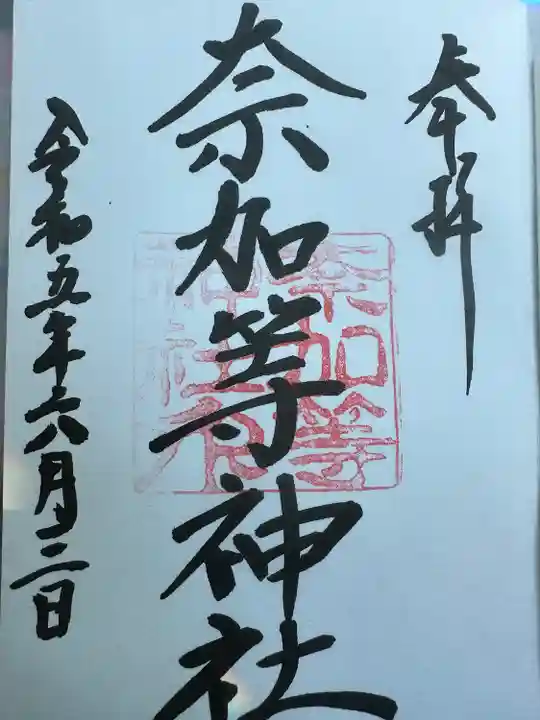 奉拝
奈加等神社
令和五年六月二日
奈加等
神社